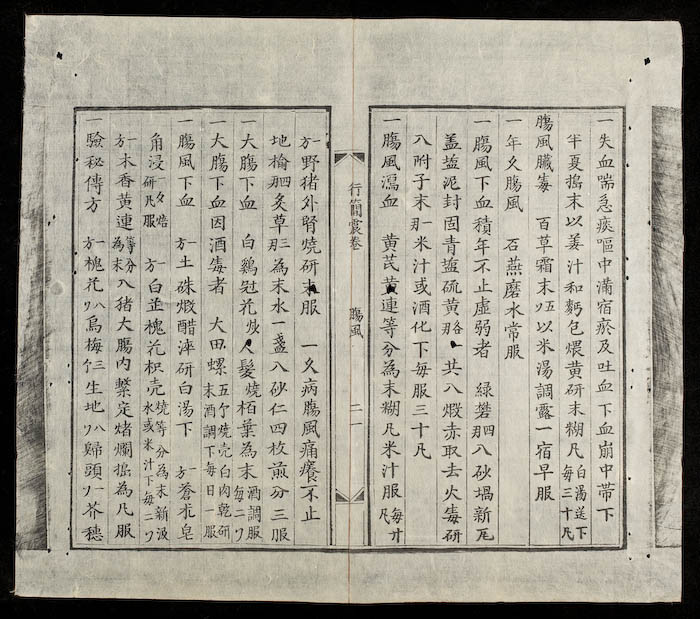 一失血喘急痰嘔中滿宿瘀及吐血下血崩中帶下
半夏搗末以姜汁和麪包煨黃研末糊凡白湯送下每三十凡
腸風臟毒　百草霜末以米湯調露一宿早服
一年久腸風　石燕磨水常服
一腸風下血積年不止虛弱者　綠礬四入砂堝新瓦
盖鹽泥封固青鹽硫黃各共入煆赤取去火毒研
入附子末一米汁或酒化下每服三十凡
一腸風瀉血　黃芪黃連等分為末糊凡米汁服每廿凡
行簡震卷　腸風　二一
一方野猪外腎燒研末服　一久病腸風痛癢不止
地榆四炙草三為末水一盞入砂仁四枚煎分三服
一大腸下血　白鷄冠花炒髮燒栢葉為末酒調服每二
一大腸下血因酒毒者　大田螺五個燒壳白肉乾研末酒調下每日一服
一腸風下血　一方土硃煆醋淬研白湯下　一方蒼朮皂
角浸一夕焙研凡服　一方白芷槐花枳壳燒等分為末新汲水或米汁下每二
一方木香黃連等分為末入猪大腸內繫定煑爛搗為凡服
一驗秘傳方　一方槐花八烏梅三生地八歸頭一芥穗